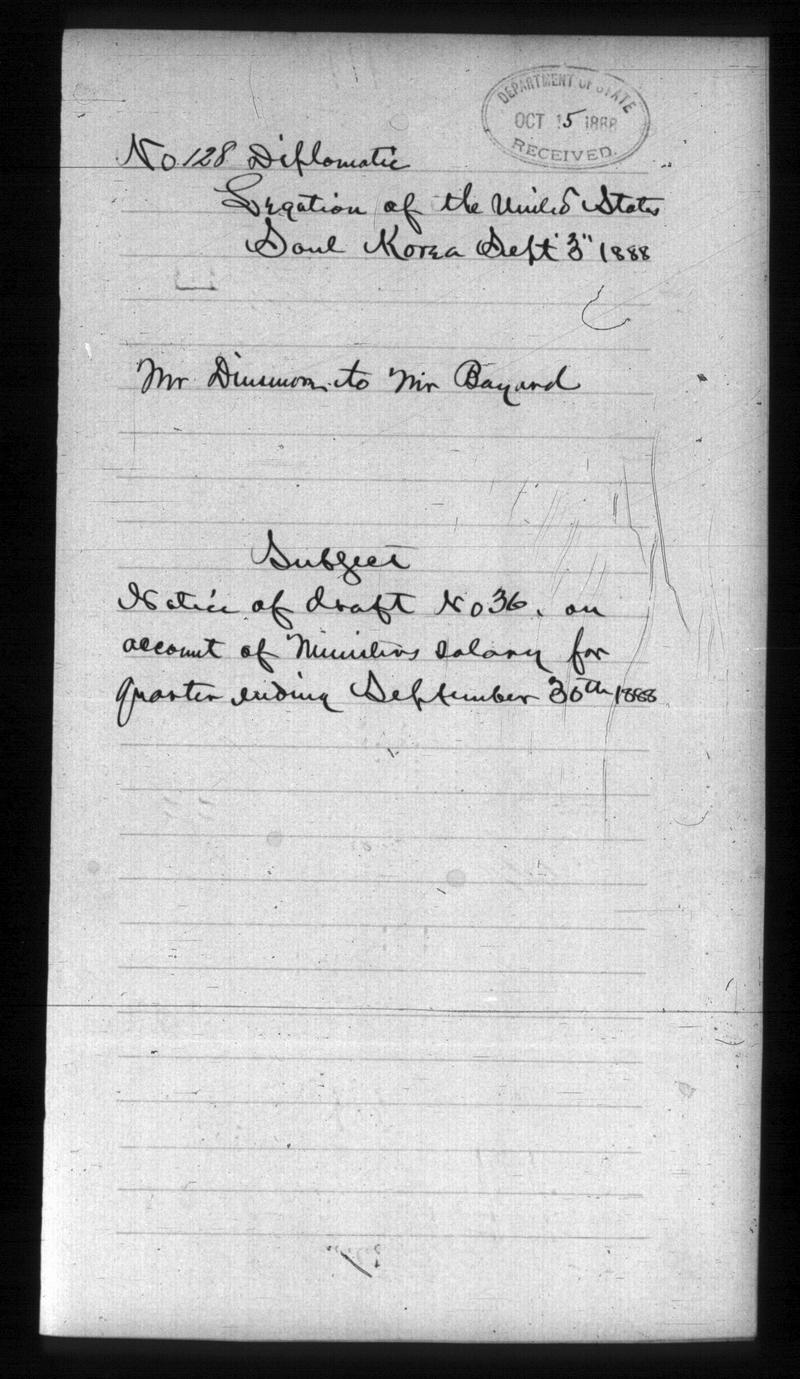 DEPARTMENT OF STATE
OCT 15 1888
RECEIVED.
No 128 Diplomatic
Legation of the United States
Soul Korea Sept "3" 1888
Mr Dinsmore to Mr Bayard
Subject
Notice of draft No 36. on
account of Ministers salary for
quarter ending September 30th 1888